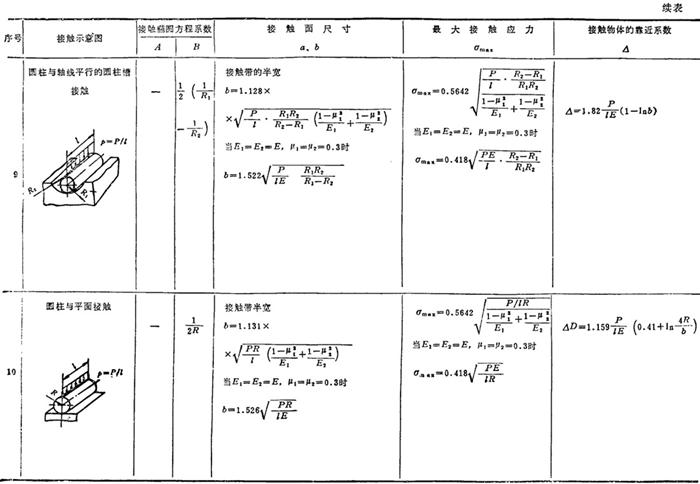 续表
序号 接触示意图 接触椭圆方程系数 接触面尺寸 最大接触应力 接触物体的靠近系数
A B a、b σmax Δ
9
圆柱与轴线平行的圆柱槽
接触
p=P/l
R₂ R₁
—
1/2 (1/R₁
−1/R₂)
接触带的半宽
b=1.128×
×√(P/l · R₁R₂/(R₂−R₁) ((1−μ₁²)/E₁+(1−μ₂²)/E₂))
当E₁=E₂=E，μ₁=μ₂=0.3时
b=1.522√(P/lE R₁R₂/(R₁−R₂))
σmax=0.5642√((P/l · (R₂−R₁)/(R₁R₂))/((1−μ₁²)/E₁+(1−μ₂²)/E₂))
当E₁=E₂=E，μ₁=μ₂=0.3时
σmax=0.418√(PE/l · (R₂−R₁)/(R₁R₂))
Δ=1.82 P/lE (1−lnb)
10
圆柱与平面接触
p=P/l
R
—
1/2R
接触带半宽
b=1.131×
×√(PR/l ((1−μ₁²)/E₁+(1−μ₂²)/E₂))
当E₁=E₂=E，μ₁=μ₂=0.3时
b=1.526√(PR/lE)
σmax=0.5642√((P/lR)/((1−μ₁²)/E₁+(1−μ₂²)/E₂))
当E₁=E₂=E，μ₁=μ₂=0.3时
σmax=0.418√(PE/lR)
ΔD=1.159 P/lE (0.41+ln 4R/b)